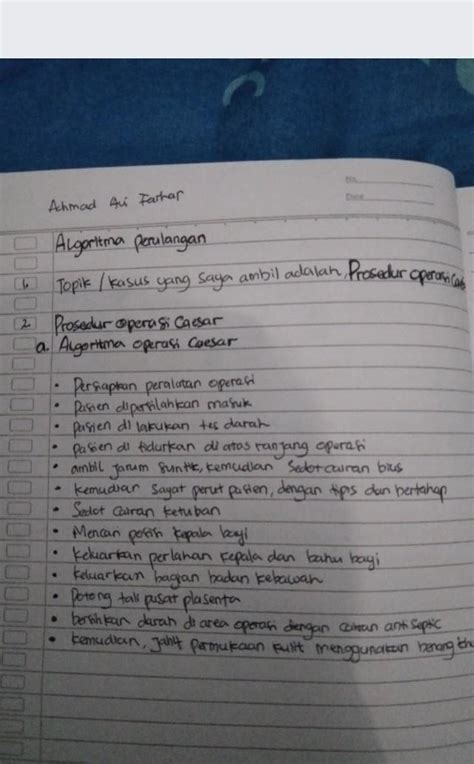 No.
Date
Achmad Ari Farhar
Algoritma perulangan
1. Topik / kasus yang saya ambil adalah, Prosedur operasi
2. Prosedur operasi Caesar
a. Algoritma operasi Caesar
• Persiapkan peralatan operasi
• Pasien dipersilahkan masuk
• pasien di lakukan tes darah
• pasien di tidurkan di atas ranjang operasi
• ambil jarum suntik, kemudian sedot cairan bius
• kemudian sayat perut pasien, dengan tipis dan bertahap
• Sedot cairan ketuban
• Mencari posisi kepala bayi
• keluarkan perlahan kepala dan bahu bayi
• keluarkan bagian badan kebawah
• potong tali pusat plasenta
• bersihkan darah di area operasi dengan cairan anti septic
• kemudian, jahit permukaan kulit menggunakan benang